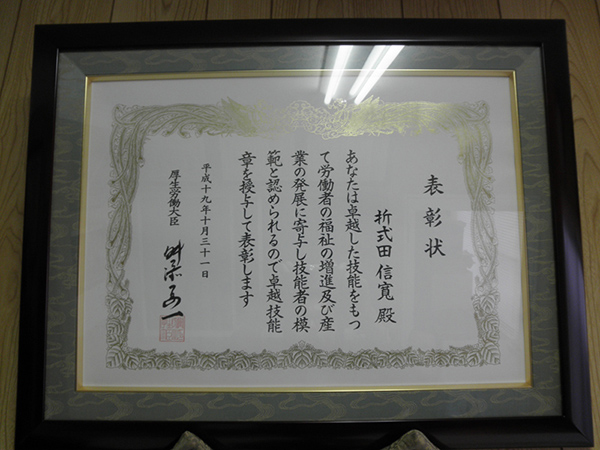 表彰状
折式田信寛殿
あなたは卓越した技能をもつ
て労働者の福祉の増進及び産
業の発展に寄与し技能者の模
範と認められるので卓越技能
章を授与して表彰します
平成十九年十月三十一日
厚生労働大臣
舛添要一